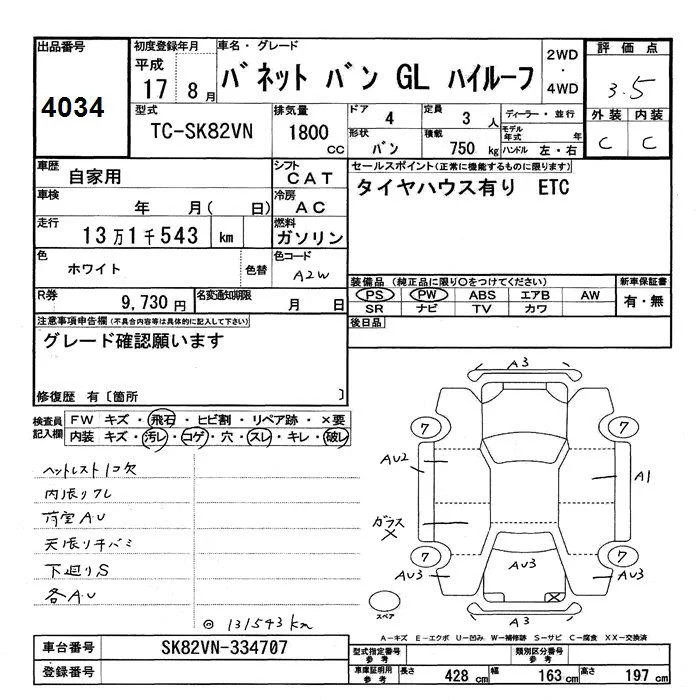 出品番号
4034
初度登録年月
平成
17 8月
車名・グレード
バネット バン GL ハイルーフ
2WD
・
4WD
評価点
3.5
外装 内装
C C
型式
TC-SK82VN
排気量
1800
cc
ドア
4
定員
3人
形状
バン
積載
750 kg
ディーラー・並行
モデル年式 年
ハンドル 左・右
車歴
自家用
シフト
CAT
車検
年 月( 日)
冷房
AC
走行
13万1千543 km
燃料
ガソリン
色
ホワイト
色替
色コード
A2W
R券
9,730円
名変通知期限
月 日
セールスポイント(正常に機能するものに限ります)
タイヤハウス有り ETC
装備品 (純正品に限り○をつけてください)
PS PW ABS エアB AW
SR ナビ TV カワ
新車保証書
有・無
後日品
注意事項申告欄(不具合内容等は具体的に記入して下さい)
グレード確認願います
修復歴 有〔箇所 〕
検査員
記入欄
FW キズ・飛石・ヒビ割・リペア跡・×要
内装 キズ・汚レ・コゲ・穴・スレ・キレ・破レ
ヘットレスト1コ欠
内張りワレ
荷室AU
天張り手バミ
下廻りS
各AU
◎131543km
A3
7 7
AU2
A1
ガラス
×
7 7
AU3 AU3 AU3
×
スペア
A3
A－キズ E－エクボ U－凹み W－補修跡 S－サビ C－腐食 XX－交換済
車台番号
SK82VN-334707
登録番号
型式指定番号
参考
類別区分番号
参考
車庫証明用
参考
長さ 428 cm 幅 163 cm 高さ 197 cm